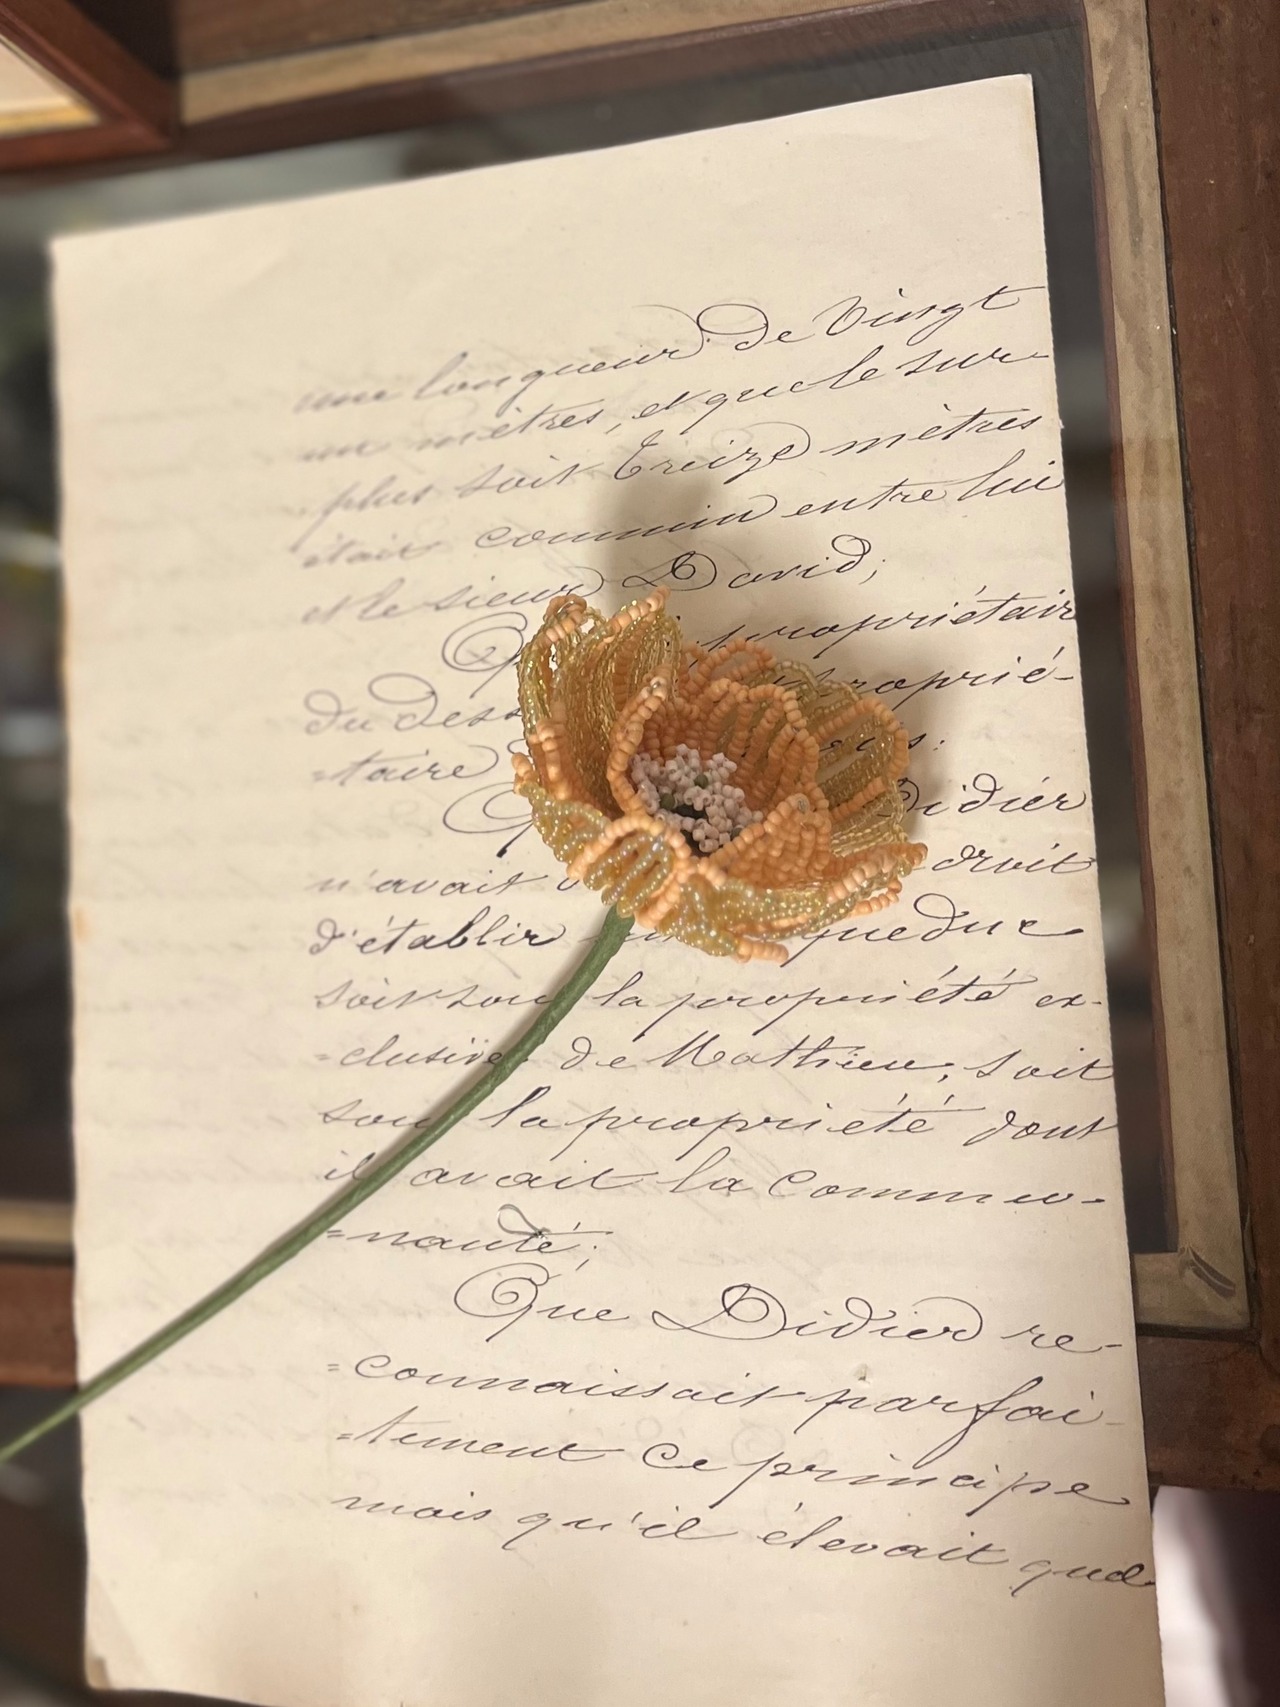 une longueur de Vingt
un mètres, et que le sur-
plus soit Treize mètres
était commun entre lui
et le sieur David;
propriétair
du dess
proprié-
=taire
Didier
n'avait droit
d'établir queduc
soit sou la propriété ex-
=clusive de Mathieu, soit
sou la propriété dont
il avait la commu-
=nauté;
Que Didier re-
=connaissait parfai-
=tement ce principe
mais qu'il élevait quel